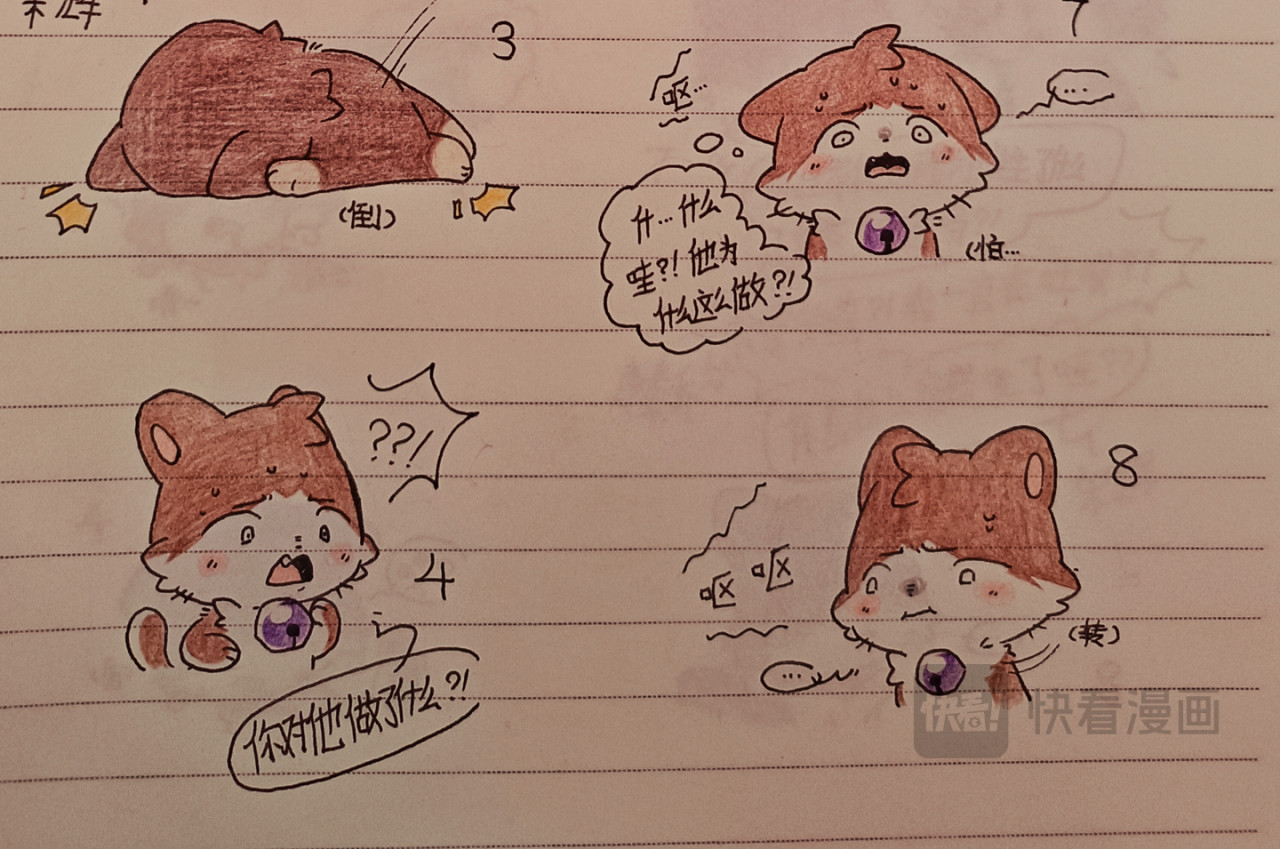 3
(倒)
7
呕…
…
什…什么
哇?!他为
什么这么做?!
(怕…
??!
4
你对他做了什么?!
8
呕 呕
(转)
…
快看!
快看漫画